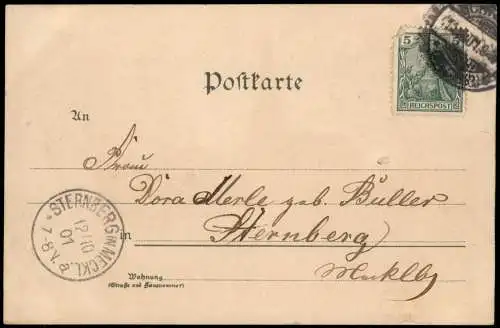 5
REICHSPOST
Postkarte
An
Frau
Dora Merle geb. Buller
in Sternberg
Mecklbg
Wohnung
(Straße und Hausnummer)
STERNBERG IN MECKL.
12/10
01
7-8 N.